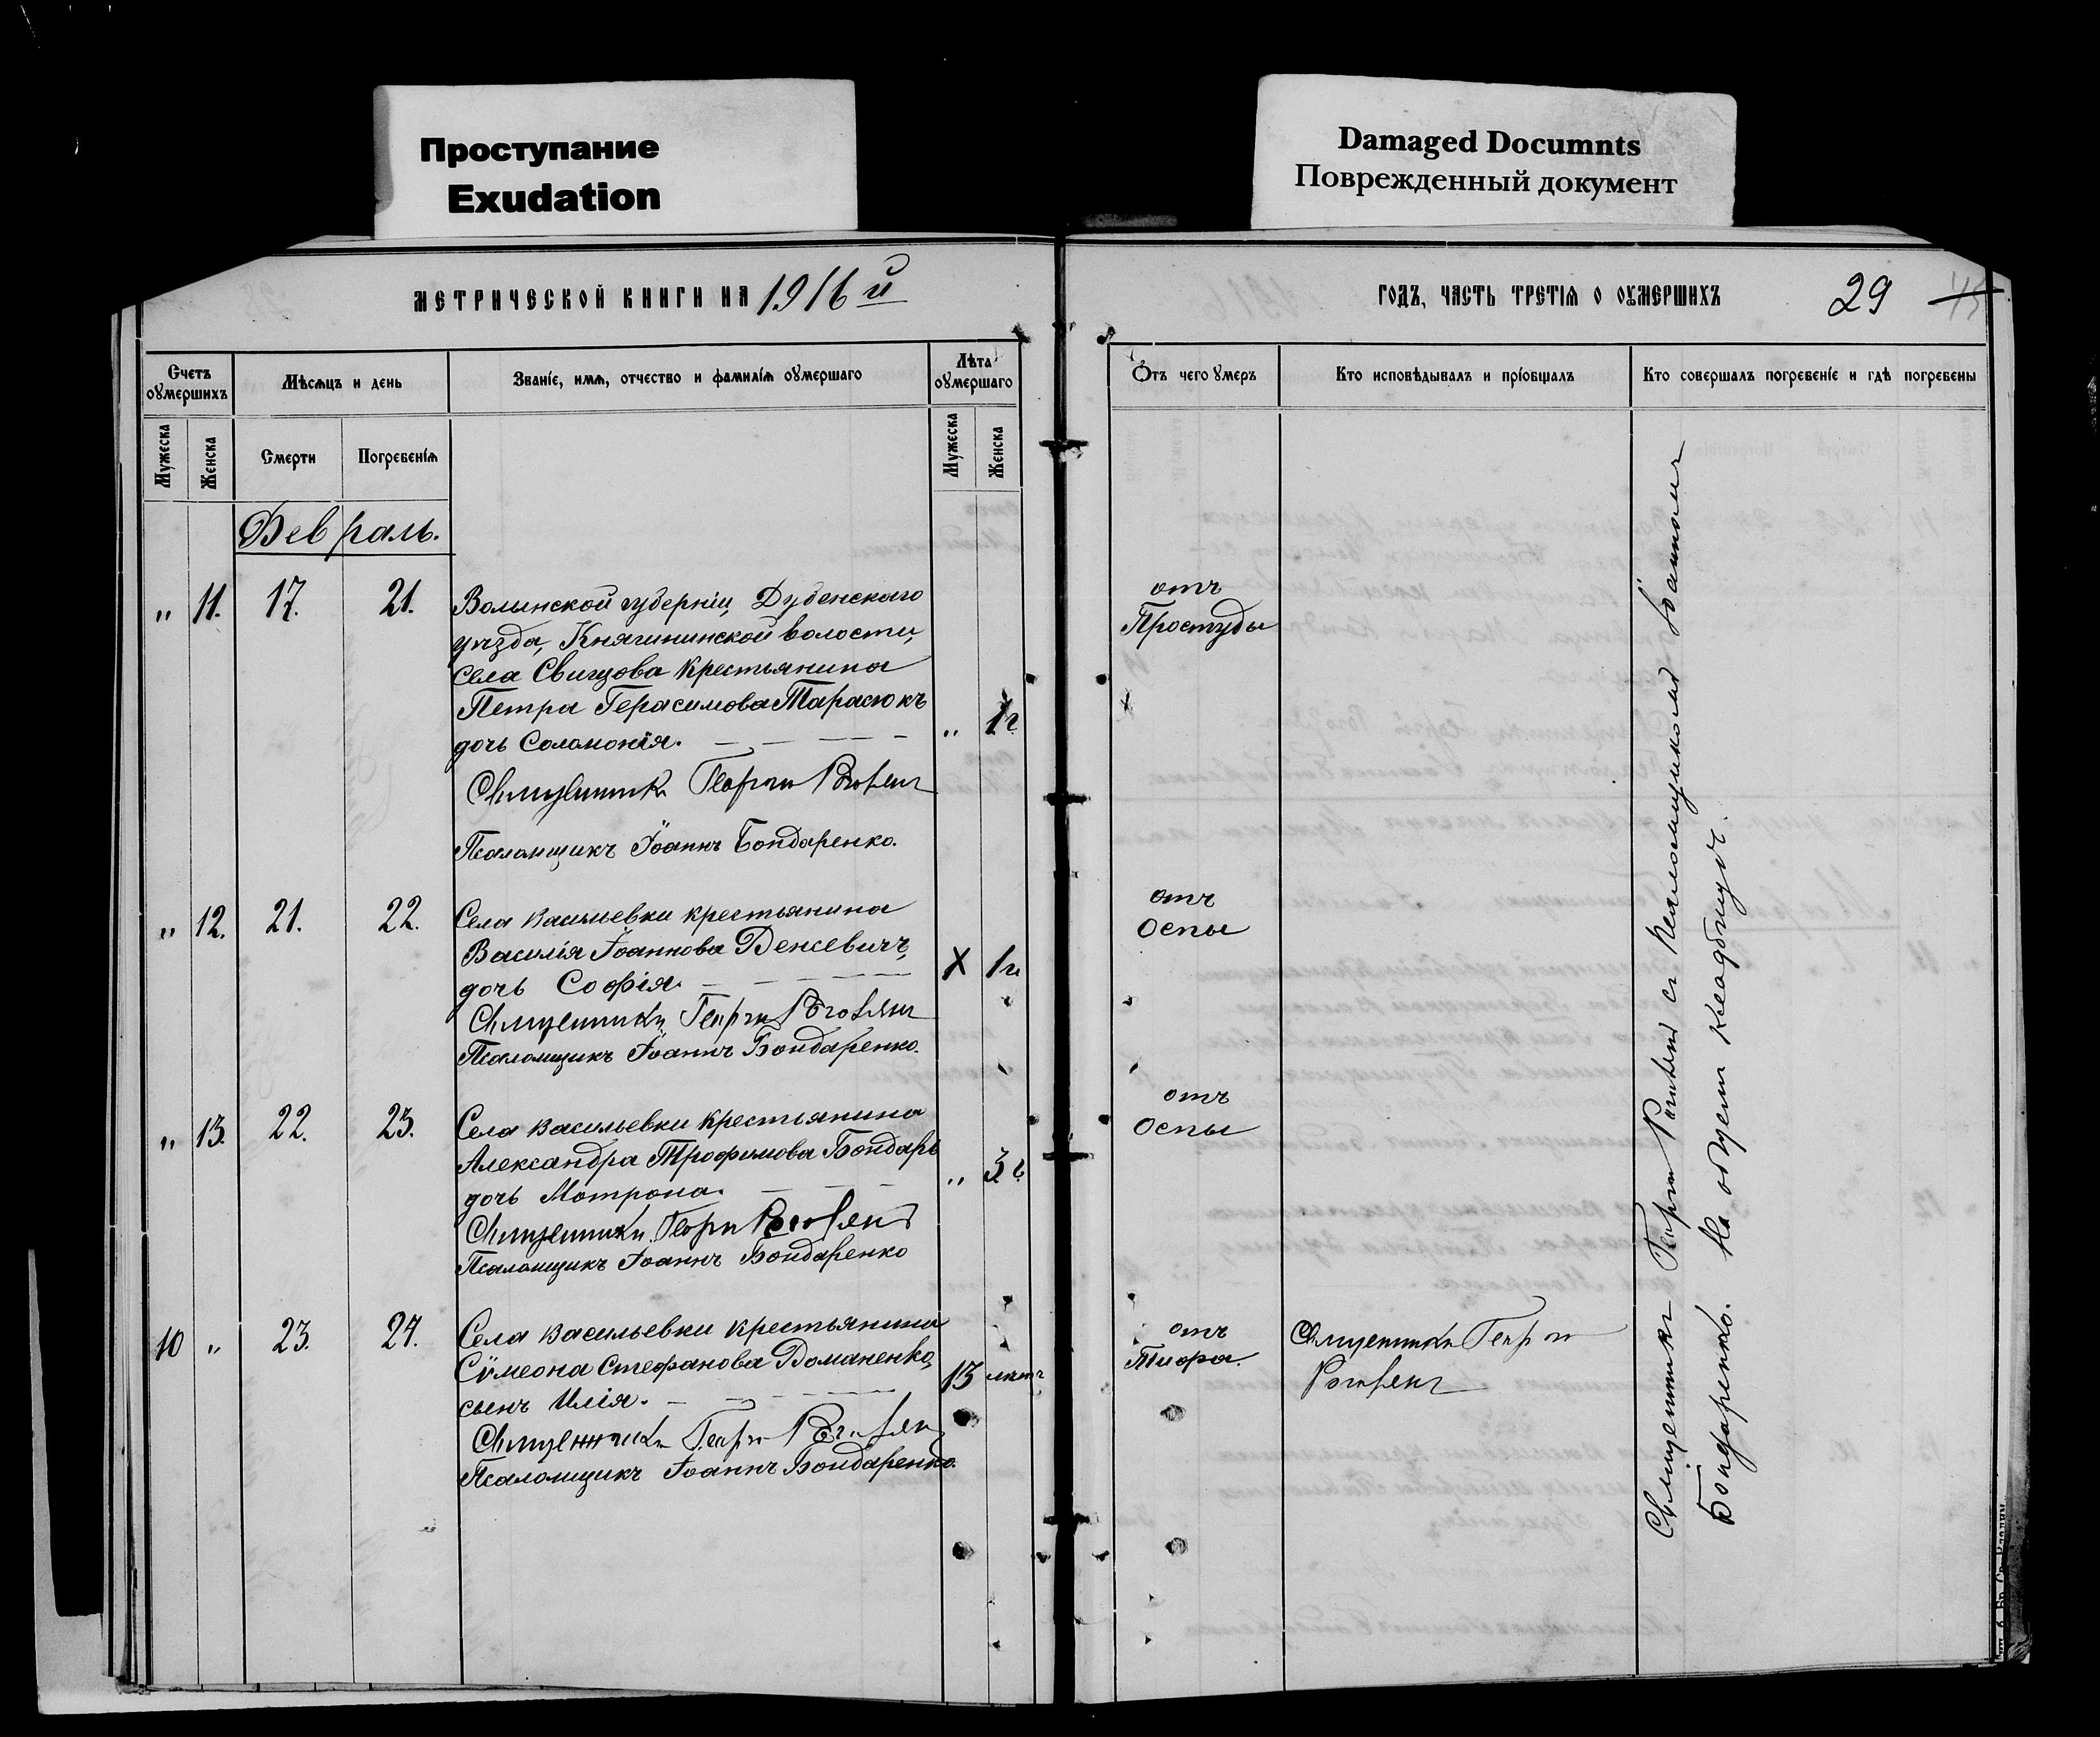 Проступание
Exudation
Damaged Documnts
Поврежденный документ
МЕТРИЧЕСКОЙ КНИГИ НА 1916 й
ГОДЪ, ЧАСТЬ ТРЕТІѦ О ОУМЕРШИХЪ
29
45
Счетъ оумершихъ
Мѣсѧцъ и день
Званіе, имѧ, отчество и фамиліѧ оумершаго
Лѣта оумершаго
Отъ чего умеръ
Кто исповѣдывалъ и пріобщалъ
Кто совершалъ погребеніе и гдѣ погребены
Мужеска
Женска
Смерти
Погребеніѧ
Мужеска
Женска
Февраль.
" 11. 17. 21. Волынской губерніи, Дубенскаго
уѣзда, Княгининской волости,
села Свищова крестьянина
Петра Герасимова Тарасюкъ
дочь Соломонія. " 1 г.
отъ
Простуды
Священникъ Георгій
Псаломщикъ Іоаннъ Бондаренко.
" 12. 21. 22. Села Васильевки крестьянина
Василія Іоаннова Венсевичъ,
дочь Софія. X 1 г.
отъ
Оспы
Священникъ Георгій
Псаломщикъ Іоаннъ Бондаренко.
" 13. 22. 23. Села Васильевки крестьянина
Александра Трофимова Бондарь
дочь Мотрона. " 3 г.
отъ
Оспы
Священникъ Георгій
Псаломщикъ Іоаннъ Бондаренко
10 " 23. 24. Села Васильевки крестьянина
Сѵмеона Стефанова Доманенко,
сынъ Илія. 13 лѣтъ
отъ
Тифа.
Священникъ Георгій
Священникъ Георгій
Псаломщикъ Іоаннъ Бондаренко.
Священникъ Георгій съ псаломщикомъ Іоанномъ
Бондаренко. На общемъ кладбищѣ.